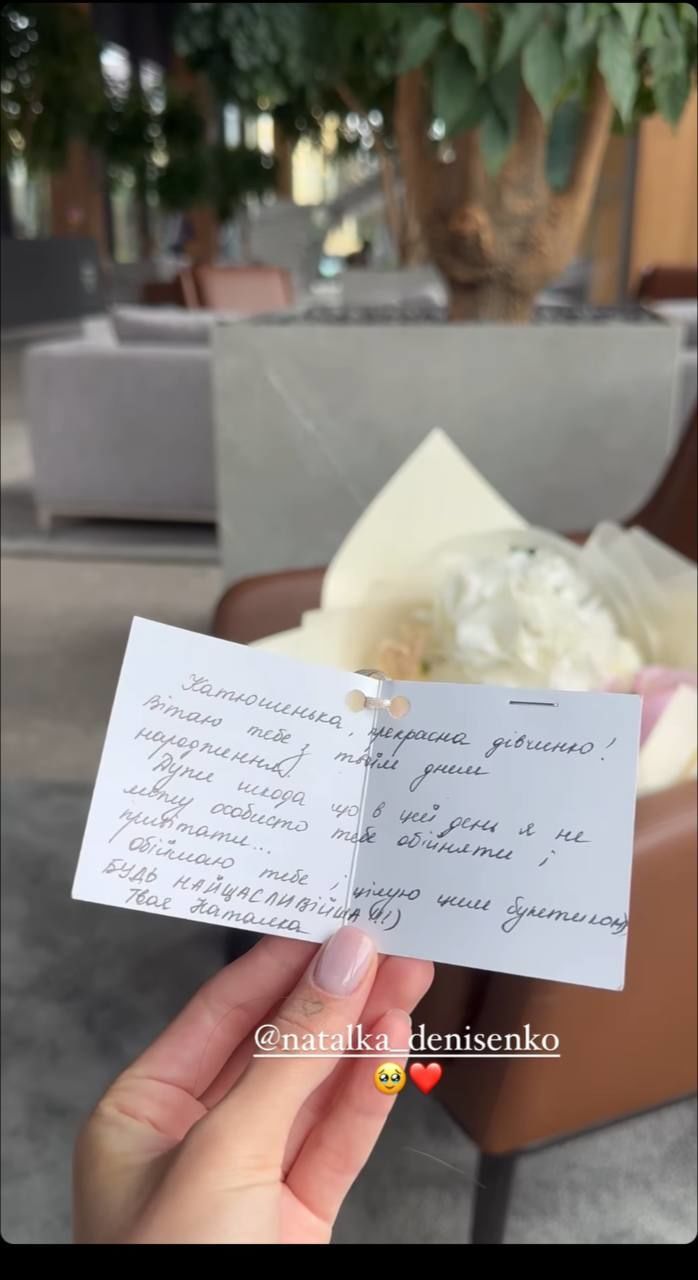 Катюшенька, прекрасна дівчинко!
Вітаю тебе з твоїм днем
народження.
Дуже шкода що в цей день я не
можу особисто тебе обійняти і
привітати...
Обіймаю тебе і цілую цим букетиком))
БУДЬ НАЙЩАСЛИВІЙША!!!)
Твоя Наталка
@natalka_denisenko
🥹❤️